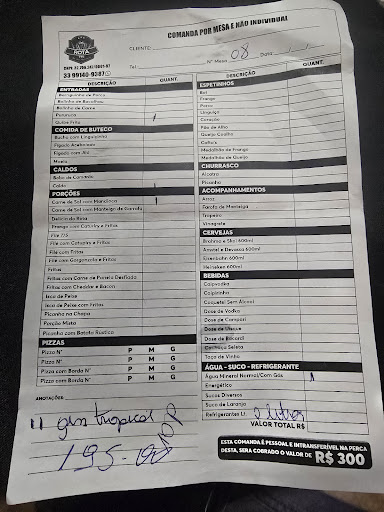 COMANDA POR MESA E NÃO INDIVIDUAL
ROTA
33 99140-9387
CLIENTE:
Tel
Nº Mesa 08 Data / /
DESCRIÇÃO QUANT.
ENTRADAS
Bolinho de Bacalhau
Bolinho de Carne
Pururuca
Quibe Frito
COMIDA DE BUTECO
Bucho com Linguicinha
Fígado Acebolado
Fígado com Jiló
Moela
CALDOS
Caldo
PORÇÕES
Carne de Sol com Mandioca
Carne de Sol com Manteiga de Garrafa
Delícia do Rota
Frango com Catupiry e Fritas
Filé com Catupiry e Fritas
Filé com Fritas
Filé com Gorgonzola e Fritas
Fritas
Fritas com Carne de Panela Desfiada
Fritas com Cheddar e Bacon
Isca de Peixe
Isca de Peixe com Fritas
Picanha na Chapa
Porção Mista
Picanha com Batata Rústica
PIZZAS P M G
Pizza Nº P M G
Pizza Nº P M G
Pizza com Borda Nº P M G
Pizza com Borda Nº P M G
ANOTAÇÕES
11 gin tropical
195-00
DESCRIÇÃO QUANT.
ESPETINHOS
Boi
Frango
Porco
Linguiça
Coração
Pão de Alho
Queijo Coalho
Cafta
Medalhão de Frango
Medalhão de Queijo
CHURRASCO
Alcatra
Picanha
ACOMPANHAMENTOS
Arroz
Farofa de Manteiga
Tropeiro
Vinagrete
CERVEJAS
Brahma e Skol 600ml
Amstel e Devassa 600ml
Eisenbahn 600ml
Heineken 600ml
BEBIDAS
Caipivodka
Caipirinha
Coquetel Sem Álcool
Dose de Vodka
Dose de Campari
Dose de Bacardi
Cachaça Seleta
Taça de Vinho
ÁGUA - SUCO - REFRIGERANTE
Água Mineral Normal/Com Gás
Energético
Sucos Diversos
Suco de Laranja
Refrigerantes Lt. 2 litros
VALOR TOTAL R$
ESTA COMANDA É PESSOAL E INTRANSFERÍVEL NA PERCA
DESTA, SERÁ COBRADO O VALOR DE R$ 300